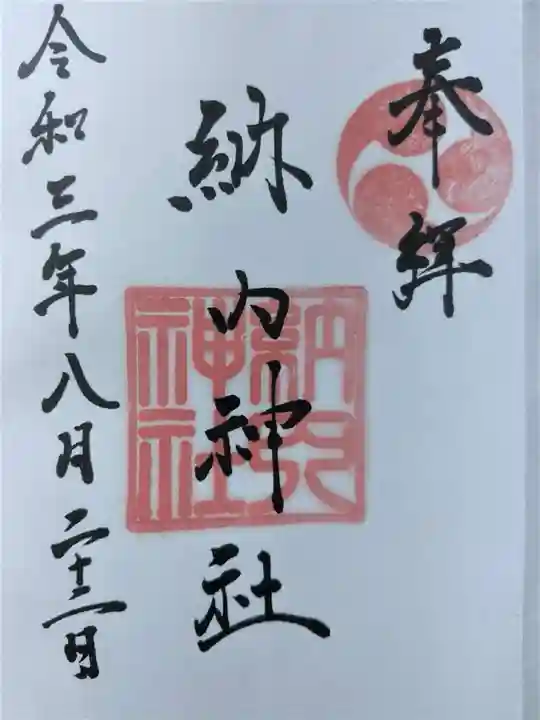 奉拝
納内神社
納内神社
令和三年八月二十二日